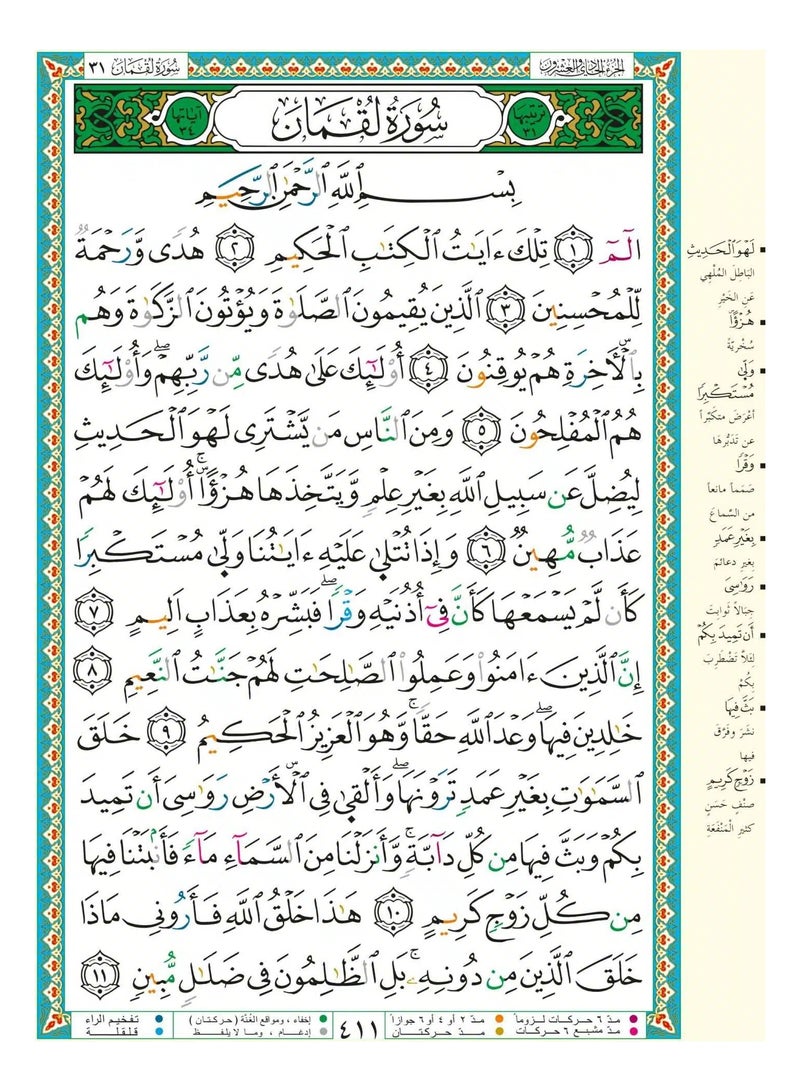 الجزء الحادي والعشرون
سُورَةُ لُقْمَانَ ٣١
ترتيبها ٣١
سُورَةُ لُقْمَانَ
آياتها ٣٤
بِسْمِ ٱللَّهِ ٱلرَّحْمَٰنِ ٱلرَّحِيمِ
الٓمٓ ١ تِلْكَ ءَايَٰتُ ٱلْكِتَٰبِ ٱلْحَكِيمِ ٢ هُدًى وَرَحْمَةً
لِّلْمُحْسِنِينَ ٣ ٱلَّذِينَ يُقِيمُونَ ٱلصَّلَوٰةَ وَيُؤْتُونَ ٱلزَّكَوٰةَ وَهُم
بِٱلْأَخِرَةِ هُمْ يُوقِنُونَ ٤ أُو۟لَٰٓئِكَ عَلَىٰ هُدًى مِّن رَّبِّهِمْ ۖ وَأُو۟لَٰٓئِكَ
هُمُ ٱلْمُفْلِحُونَ ٥ وَمِنَ ٱلنَّاسِ مَن يَشْتَرِى لَهْوَ ٱلْحَدِيثِ
لِيُضِلَّ عَن سَبِيلِ ٱللَّهِ بِغَيْرِ عِلْمٍ وَيَتَّخِذَهَا هُزُوًا ۚ أُو۟لَٰٓئِكَ لَهُمْ
عَذَابٌ مُّهِينٌ ٦ وَإِذَا تُتْلَىٰ عَلَيْهِ ءَايَٰتُنَا وَلَّىٰ مُسْتَكْبِرًا
كَأَن لَّمْ يَسْمَعْهَا كَأَنَّ فِىٓ أُذُنَيْهِ وَقْرًا ۖ فَبَشِّرْهُ بِعَذَابٍ أَلِيمٍ ٧
إِنَّ ٱلَّذِينَ ءَامَنُوا۟ وَعَمِلُوا۟ ٱلصَّٰلِحَٰتِ لَهُمْ جَنَّٰتُ ٱلنَّعِيمِ ٨
خَٰلِدِينَ فِيهَا ۖ وَعْدَ ٱللَّهِ حَقًّا ۚ وَهُوَ ٱلْعَزِيزُ ٱلْحَكِيمُ ٩ خَلَقَ
ٱلسَّمَٰوَٰتِ بِغَيْرِ عَمَدٍ تَرَوْنَهَا ۖ وَأَلْقَىٰ فِى ٱلْأَرْضِ رَوَٰسِىَ أَن تَمِيدَ
بِكُمْ وَبَثَّ فِيهَا مِن كُلِّ دَآبَّةٍ ۚ وَأَنزَلْنَا مِنَ ٱلسَّمَآءِ مَآءً فَأَنۢبَتْنَا فِيهَا
مِن كُلِّ زَوْجٍ كَرِيمٍ ١٠ هَٰذَا خَلْقُ ٱللَّهِ فَأَرُونِى مَاذَا
خَلَقَ ٱلَّذِينَ مِن دُونِهِۦ ۚ بَلِ ٱلظَّٰلِمُونَ فِى ضَلَٰلٍ مُّبِينٍ ١١
لَهْوَ ٱلْحَدِيثِ
البَاطِلَ المُلْهِي
عَنِ الخَيْرِ
هُزُوًا
سُخْرِيَّةً
وَلَّىٰ
مُسْتَكْبِرًا
أعْرَضَ متكبّراً
عن تَدَبُّرِهَا
وَقْرًا
صَمَماً مانعاً
من السَّماع
بِغَيْرِ عَمَدٍ
بغير دعائم
رَوَٰسِىَ
جِبَالاً ثَوابِتَ
أَن تَمِيدَ بِكُمْ
لِئَلاَّ تَضْطَرِبَ
بِكُمْ
بَثَّ فِيهَا
نشَرَ وفَرَّقَ
فيها
زَوْجٍ كَرِيمٍ
صنْفٍ حَسَنٍ
كثيرِ الْمَنْفَعَة
مدّ ٦ حركات لزوماً
مدّ ٢ أو ٤ أو ٦ جوازاً
إخفاء، ومواقع الغُنَّة (حركتان)
تفخيم الراء
مدّ مشبع ٦ حركات
مدّ حركتان
إدغام، وما لا يُلفظ
قلقلة
٤١١